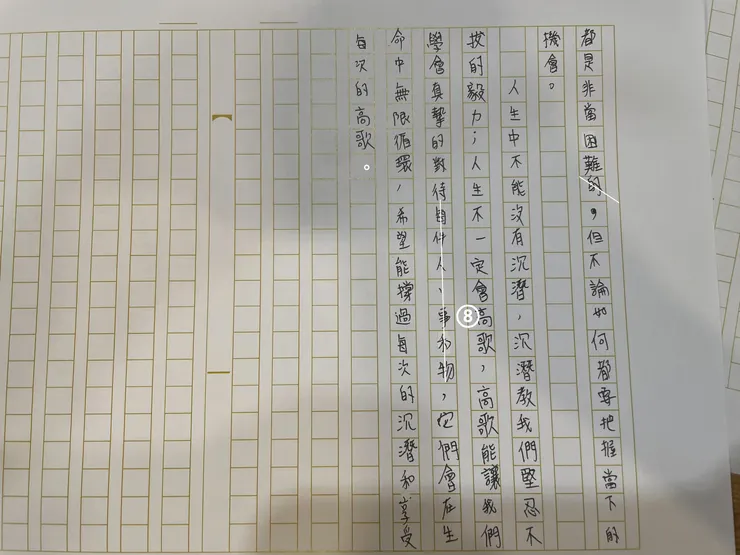 都是非當困難的，但不論如何都要把握當下的
機會。
人生中不能沒有沉潛，沉潛教我們堅忍不
拔的毅力；人生不一定會高歌，高歌能讓我們
學會真摯的對待每件人、事和物，它們會在生
命中無限循環，希望能撐過每次的沉潛和享受
每次的高歌。
⑧